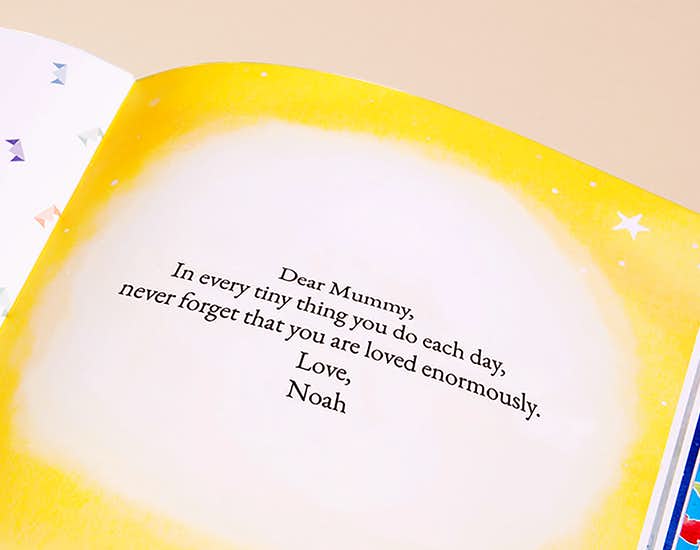 Dear Mummy,
In every tiny thing you do each day,
never forget that you are loved enormously.
Love,
Noah